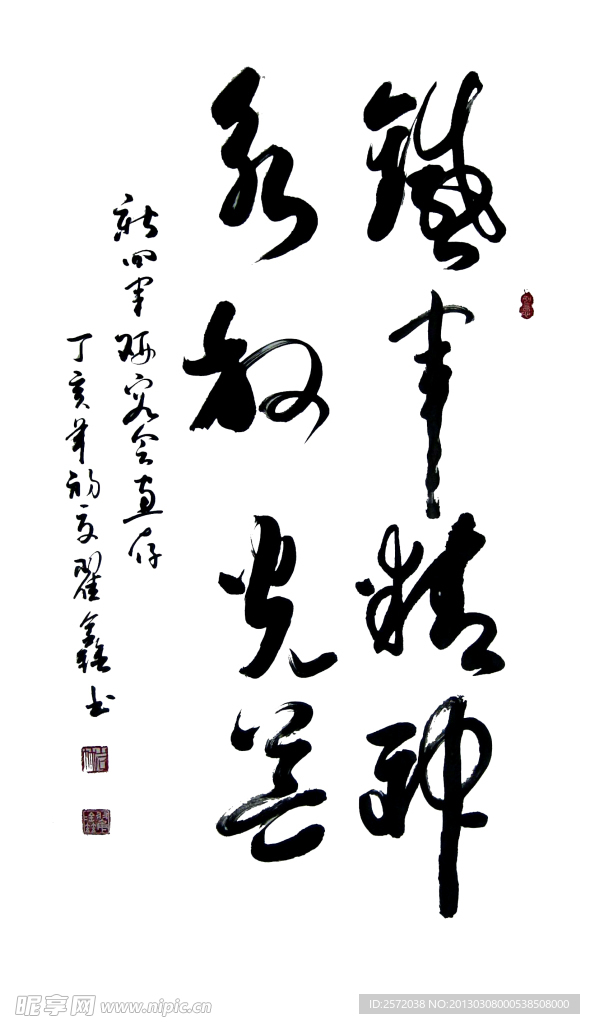 鐵軍精神
永放光芒
新四军研究会惠存
丁亥年初夏翟鑫书
昵享网 www.nipic.cn
ID:2572038 NO:20130308000538508000